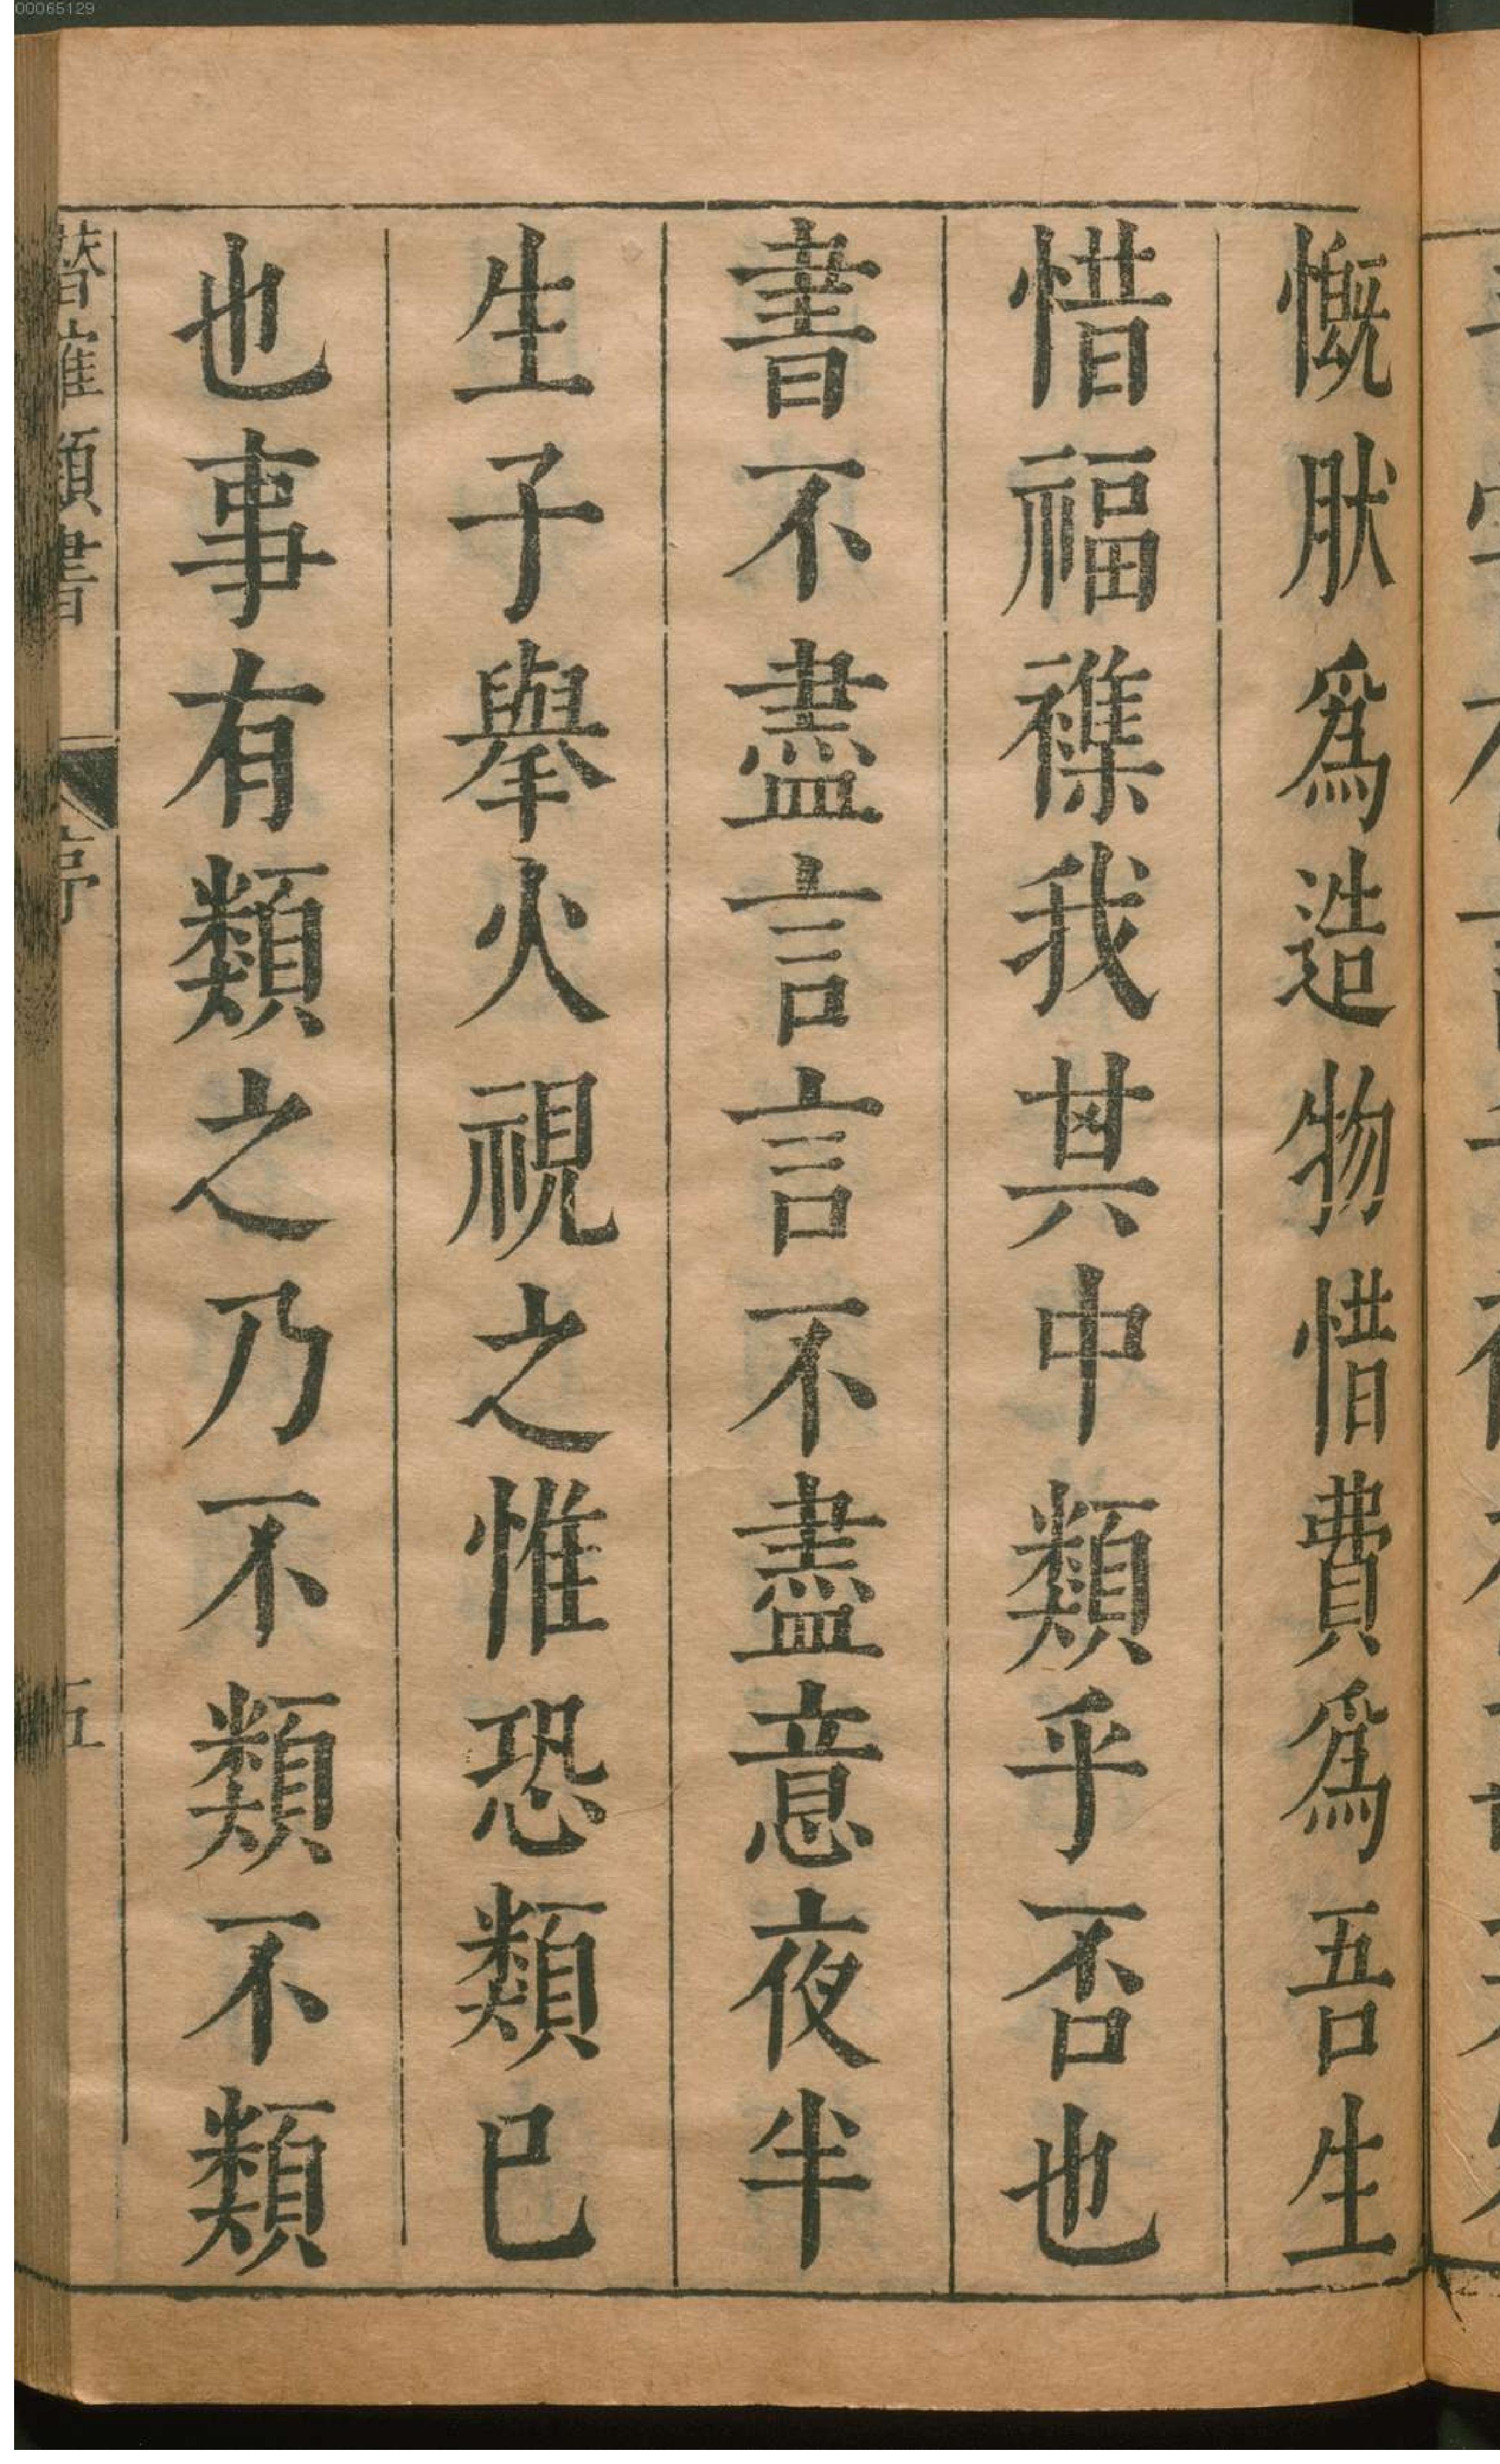 慨肰爲造物惜費爲吾生
惜福襍我其中類乎否也
書不盡言言不盡意夜半
生子舉火視之惟恐類已
也事有類之乃不類不類
潛確類書
序
五
00065129